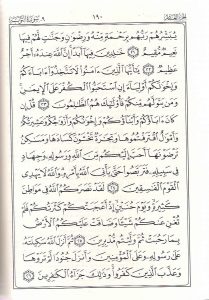 الجزء العاشر ١٩٠ سورة التوبة ٩
يُبَشِّرُهُمْ رَبُّهُم بِرَحْمَةٍ مِّنْهُ وَرِضْوَٰنٍ وَجَنَّٰتٍ لَّهُمْ فِيهَا
نَعِيمٌ مُّقِيمٌ ٢١ خَٰلِدِينَ فِيهَآ أَبَدًا إِنَّ ٱللَّهَ عِندَهُۥٓ أَجْرٌ
عَظِيمٌ ٢٢ يَٰٓأَيُّهَا ٱلَّذِينَ ءَامَنُوا۟ لَا تَتَّخِذُوٓا۟ ءَابَآءَكُمْ
وَإِخْوَٰنَكُمْ أَوْلِيَآءَ إِنِ ٱسْتَحَبُّوا۟ ٱلْكُفْرَ عَلَى ٱلْإِيمَٰنِ
وَمَن يَتَوَلَّهُم مِّنكُمْ فَأُو۟لَٰٓئِكَ هُمُ ٱلظَّٰلِمُونَ ٢٣ قُلْ إِن
كَانَ ءَابَآؤُكُمْ وَأَبْنَآؤُكُمْ وَإِخْوَٰنُكُمْ وَأَزْوَٰجُكُمْ وَعَشِيرَتُكُمْ
وَأَمْوَٰلٌ ٱقْتَرَفْتُمُوهَا وَتِجَٰرَةٌ تَخْشَوْنَ كَسَادَهَا وَمَسَٰكِنُ
تَرْضَوْنَهَآ أَحَبَّ إِلَيْكُم مِّنَ ٱللَّهِ وَرَسُولِهِۦ وَجِهَادٍ
فِى سَبِيلِهِۦ فَتَرَبَّصُوا۟ حَتَّىٰ يَأْتِىَ ٱللَّهُ بِأَمْرِهِۦ وَٱللَّهُ لَا يَهْدِى
ٱلْقَوْمَ ٱلْفَٰسِقِينَ ٢٤ لَقَدْ نَصَرَكُمُ ٱللَّهُ فِى مَوَاطِنَ
كَثِيرَةٍ وَيَوْمَ حُنَيْنٍ إِذْ أَعْجَبَتْكُمْ كَثْرَتُكُمْ فَلَمْ
تُغْنِ عَنكُمْ شَيْـًٔا وَضَاقَتْ عَلَيْكُمُ ٱلْأَرْضُ
بِمَا رَحُبَتْ ثُمَّ وَلَّيْتُم مُّدْبِرِينَ ٢٥ ثُمَّ أَنزَلَ ٱللَّهُ سَكِينَتَهُۥ
عَلَىٰ رَسُولِهِۦ وَعَلَى ٱلْمُؤْمِنِينَ وَأَنزَلَ جُنُودًا لَّمْ تَرَوْهَا
وَعَذَّبَ ٱلَّذِينَ كَفَرُوا۟ وَذَٰلِكَ جَزَآءُ ٱلْكَٰفِرِينَ ٢٦